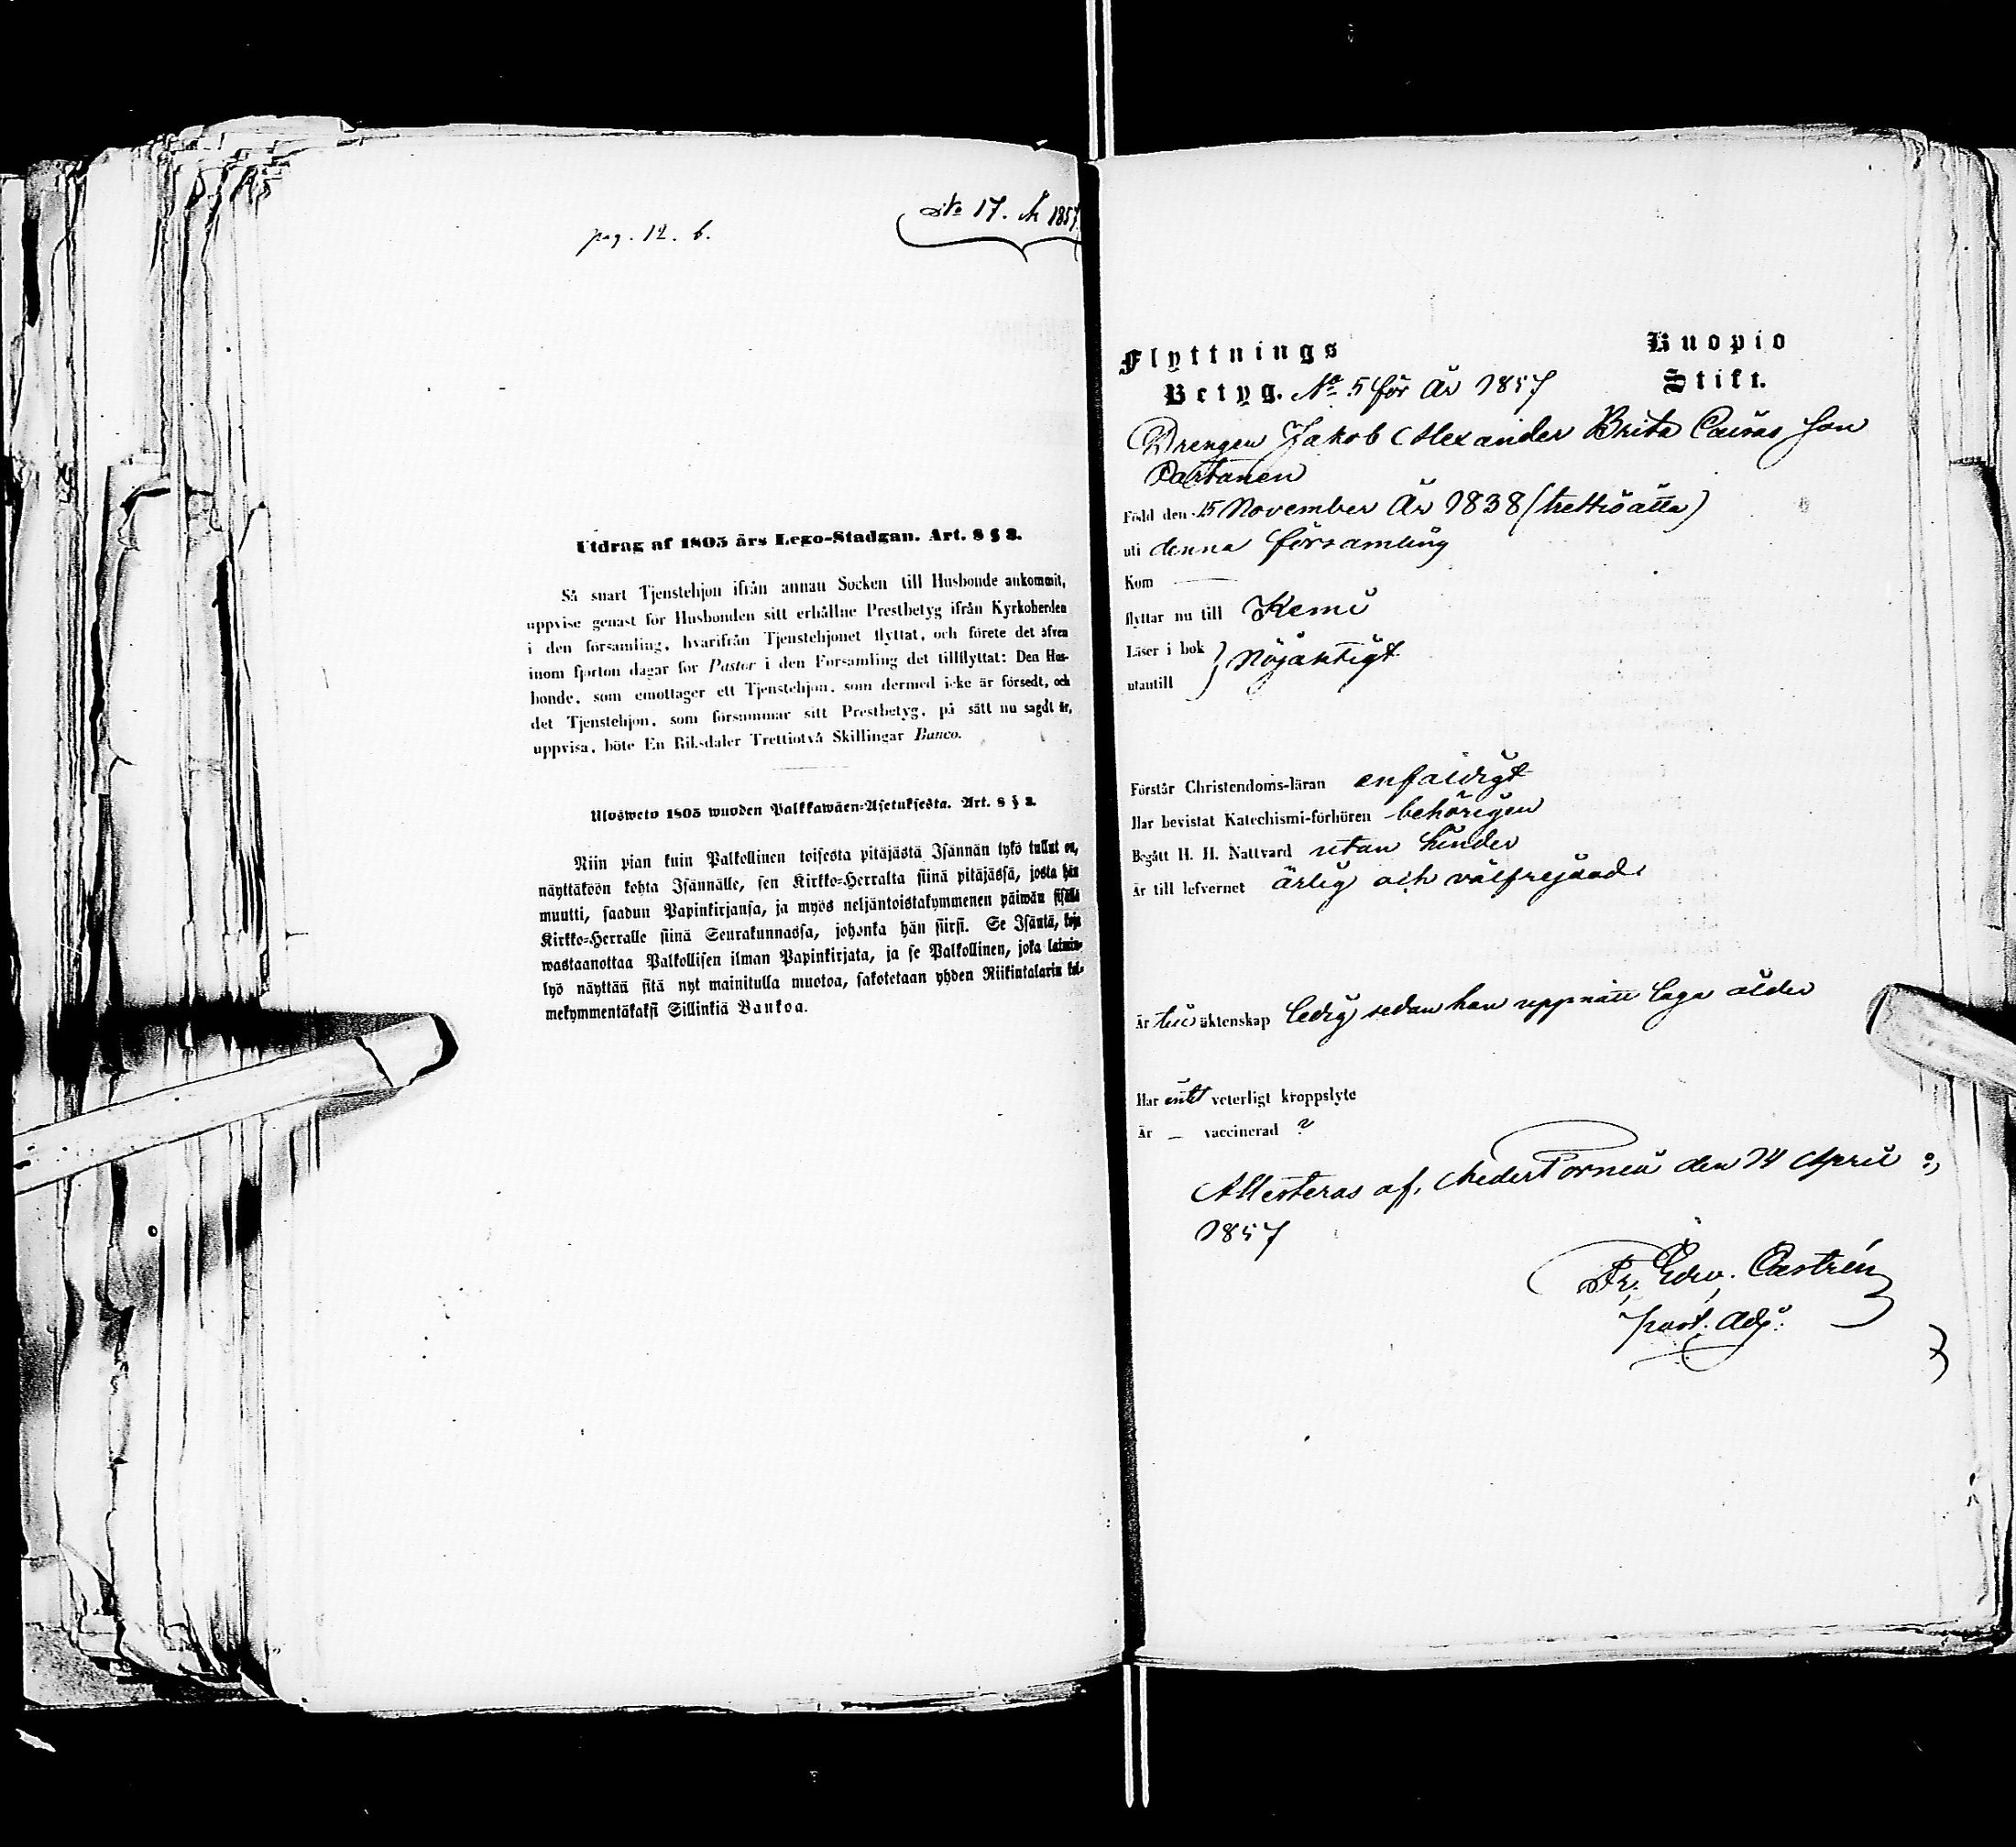 pag. 12. b.
No 17. År 1857
Utdrag af 1805 års Lego-Stadgan. Art. 8 § 2.
Så snart Tjenstehjon ifrån annan Socken till Husbonde ankommit,
uppvise genast för Husbonden sitt erhållne Prestbetyg ifrån Kyrkoherden
i den församling, hvarifrån Tjenstehjonet flyttat, och förete det äfven
inom fjorton dagar för Pastor i den Församling det tillflyttat: Den Hus-
bonde, som emottager ett Tjenstehjon, som dermed icke är försedt, och
det Tjenstehjon, som försummar sitt Prestbetyg, på sätt nu sagdt är,
uppvisa, böte En Riksdaler Trettiotvå Skillingar Banco.
Ulosweto 1805 wuoden Palkkawäen-Asetuksesta. Art. 8 § 2.
Niin pian kuin Palkollinen toisesta pitäjästä Isännän tykö tullut on,
näyttäköön kohta Isännälle, sen Kirkko-Herralta siinä pitäjässä, josta hän
muutti, saadun Papinkirjansa, ja myös neljäntoistakymmenen päiwän sisällä
Kirkko-Herralle siinä Seurakunnassa, johonka hän siirsi. Se Isäntä, koja
wastaanottaa Palkollisen ilman Papinkirjata, ja se Palkollinen, joka laimin-
lyö näyttää sitä nyt mainitulla muotoa, sakotetaan yhden Riikintalarin kol-
mekymmentäkaksi Sillinkiä Bankoa.
Flyttnings Kuopio
Betyg. No 5 för År 1857 Stift.
Drengen Jakob Alexander Brita Caisas Son
Partanen
Född den 15 November År 1838 (trettiåtta)
uti denna församling
Kom
flyttar nu till Kemi
Läser i bok
utantill } Nöjaktigt
Förstår Christendoms-läran enfaldigt
Har bevistat Katechismi-förhören behörigen
Begått H. H. Nattvard utan hinder
Är till lefvernet ärlig och välfrejdad
Är till äktenskap ledig sedan han uppnått laga ålder
Har intet veterligt kroppslyte
Är – vaccinerad ?
Attesteras af. Neder Torneå den 14 April
1857
Fr. Edv. Castrén
past. Adj: